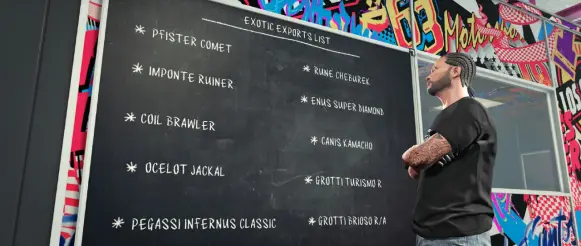 EXOTIC EXPORTS LIST
* PFISTER COMET
* IMPONTE RUINER
* COIL BRAWLER
* OCELOT JACKAL
* PEGASSI INFERNUS CLASSIC
* RUNE CHEBUREK
* ENUS SUPER DIAMOND
* CANIS KAMACHO
* GROTTI TURISMO R
* GROTTI BRIOSO R/A